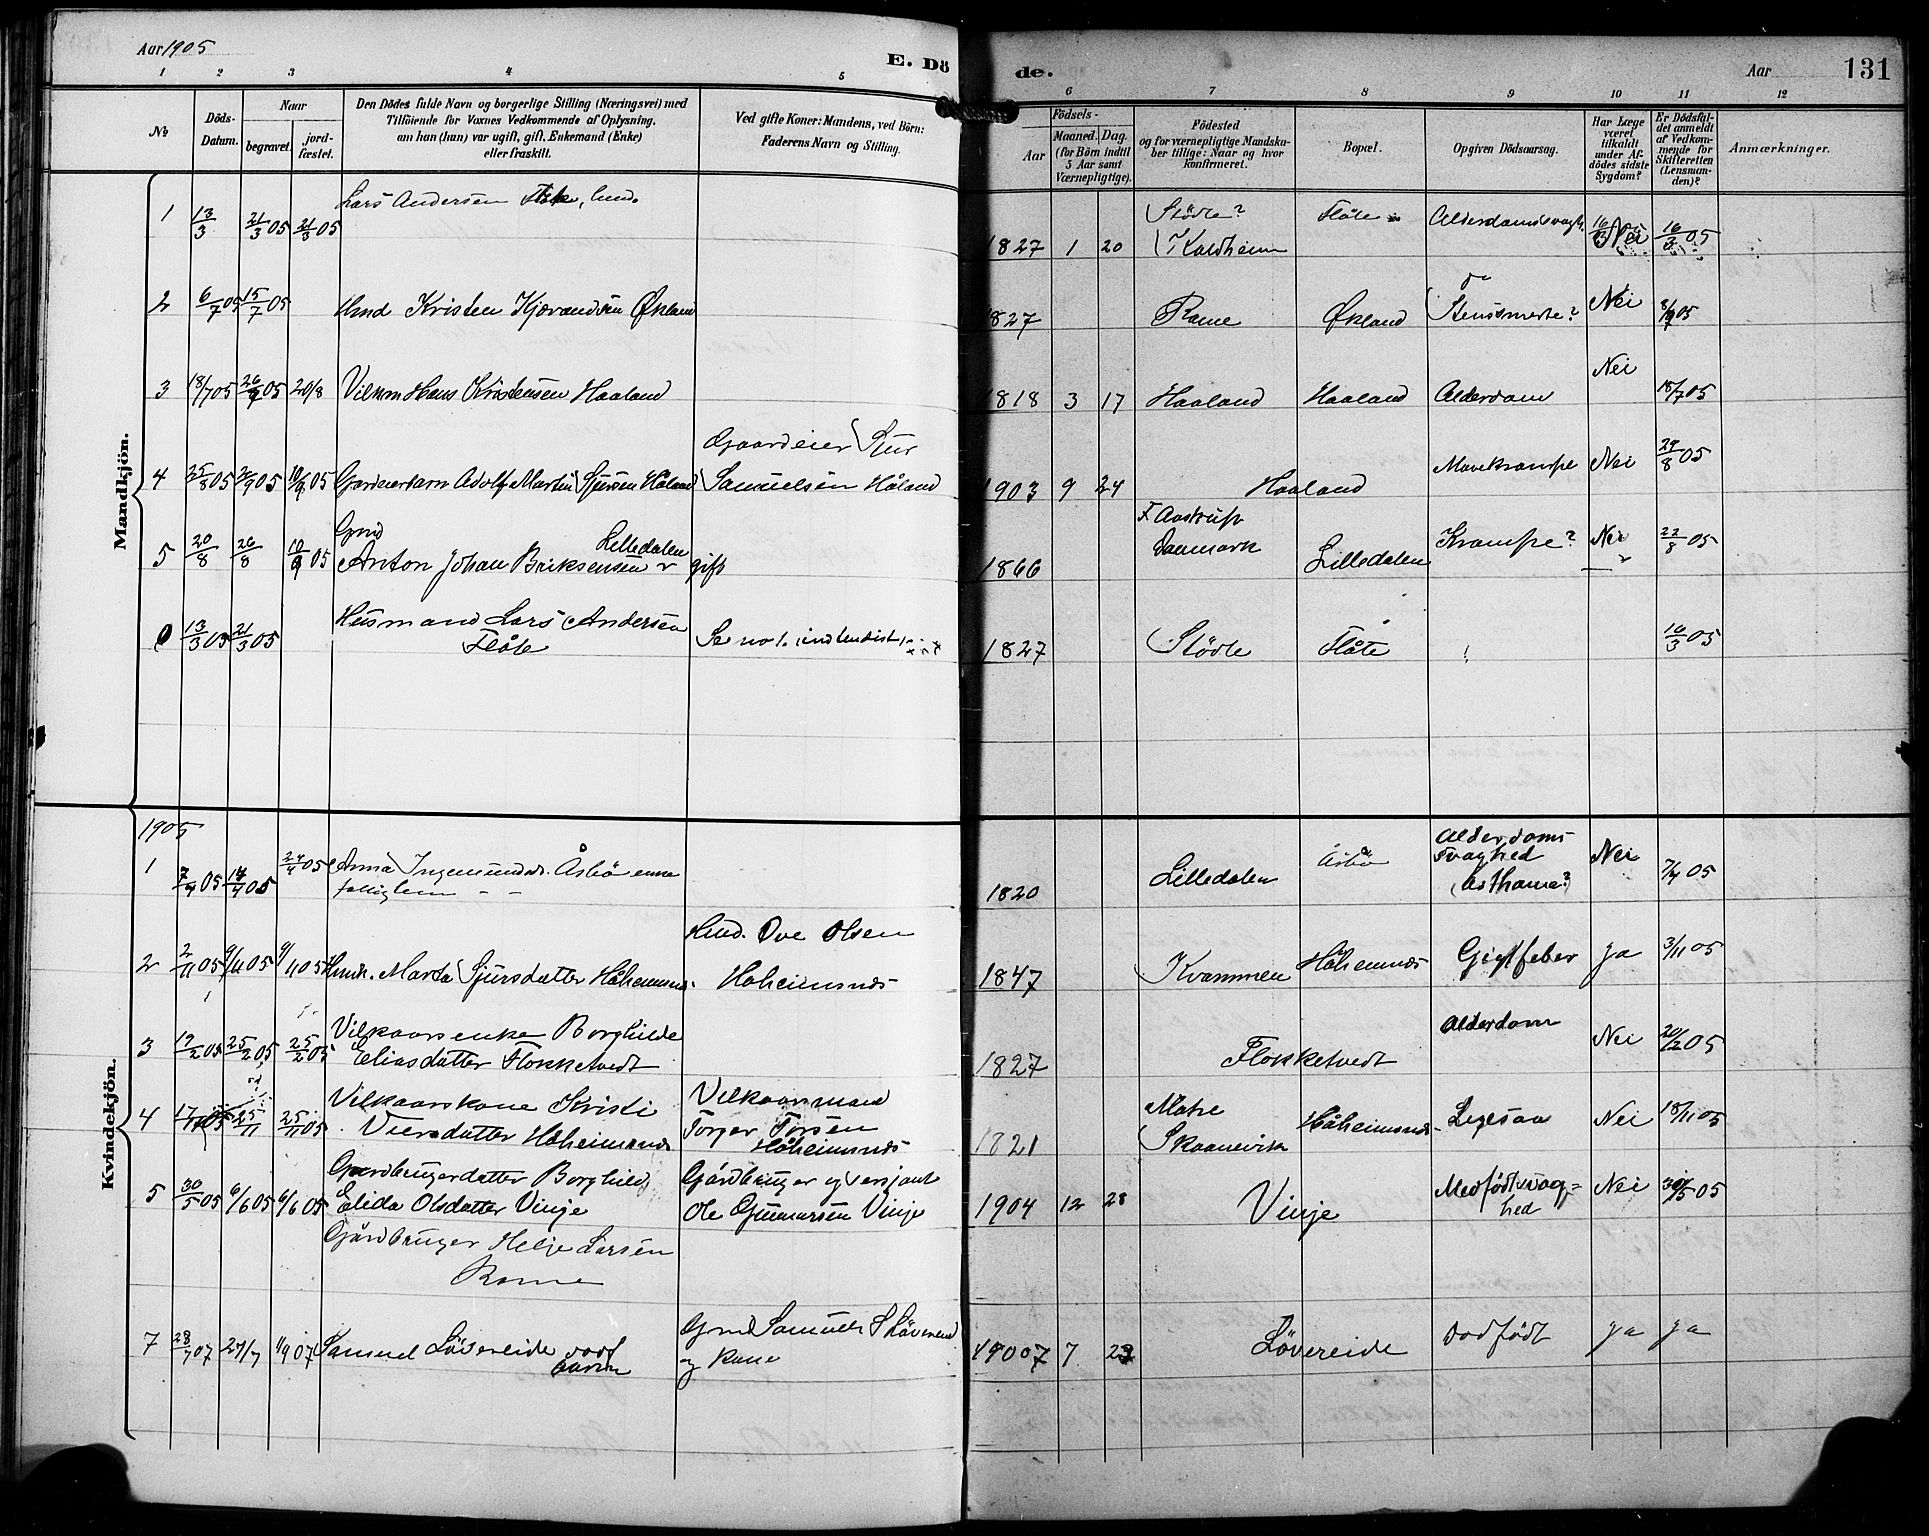 Aar 1905
E. Dö
de.
Aar
131
1 2 3 4 5
6 7 8 9 10 11 12
No
Döds-Datum.
Naar
begravet.
jord-fæstet.
Den Dödes fulde Navn og borgerlige Stilling (Næringsvei) med
Tilföiende for Voxnes Vedkommende af Oplysning,
om han (hun) var ugift, gift, Enkemand (Enke)
eller fraskilt.
Ved gifte Koner: Mandens, ved Börn:
Faderens Navn og Stilling.
Födsels-
Aar
Maaned. Dag.
(for Börn indtil
5 Aar samt
Værnepligtige).
Födested
og for værnepligtige Mandska-
ber tillige: Naar og hvor
konfirmeret.
Bopæl.
Opgiven Dödsaarsag.
Har Læge
været
tilkaldt
under Af-
dödes sidste
Sygdom?
Er Dödsfal-
det anmeldt
af Vedkom-
mende for
Skifteretten
(Lensman-
den)?
Anmærkninger.
Mandkjön.
1 13/3 21/3 05 21/3 05 Lars Andersen
1827 1 20 Stödle? Kaldheim Flåte Nei 16/3 05
2 6/7 05 15/7 05 Hmd Kristen Kjærandsen Økland
1827 Rame Økland Nei 05
3 18/7 05 26/7 05 20/8 Vilkm Hans Kristensen Haaland
1818 3 17 Haaland Haaland Alderdom Nei 18/7 05
Gaardeier Sjur
4 25/8 05 05 05 Adolf Martin Sjursen Håland Samuelsen Håland
1903 9 24 Haaland Mavekrampe Nei 29/8 05
Gmd Lilledalen
5 20/8 26/8 10/9 05 Anton Johan Briksensen gift
1866 Danmark Lilledalen Krampe? Nei 22/8 05
13/3 05 21/3 05 Husmand Lars Andersen
Flåte
Se no 1.
1827 Stödle Flåte 16/3 05
Kvindekjön.
1905
1 7/4 05 14/4 05 24/4 05 Anna Ingemundsd. Åsbö enke
1820 Lilledalen Åsbö Alderdoms
svaghed
(Asthama?) Nei 7/4 05
Hmd. Ove Olsen
2 2/11 05 9/11 05 9/11 05 Hmk. Marta Sjursdatter Håheimsnes Håheimsnes
1847 Kvammen Håheimsnes Gigtfeber ja 3/11 05
3 19/2 05 25/2 05 25/2 05 Vilkaarsenke Borghilde
Eliasdatter Flokketvedt
1827 Flokketvedt Alderdom Nei 20/2 05
4 17/11 05 25/11 25/11 05 Vilkaarskone Kristi
Viersdatter Håheimsnes
Vilkaarsmand
Torger Torsen
Håheimsnes
1821 Matre
Skaanevik Håheimsnes Legesaa Nei 18/11 05
5 30/5 05 6/6 05 6/6 05 Gardbrugerdatter Borghild
Elida Olsdatter Vinje
Gårdbruger og sersjant
Ole Gunnarsen Vinje
1904 12 28 Vinje Medfödt svag-
hed Nei 30/5 05
Gårdbruger Helje Larsen
Rame
7 28/7 07 27/7 1/9 07 Samuel Lövereide dödf
barn
Gmd Samuel S Lövereid
og kone
1907 7 Lövereide dödfödt ja ja